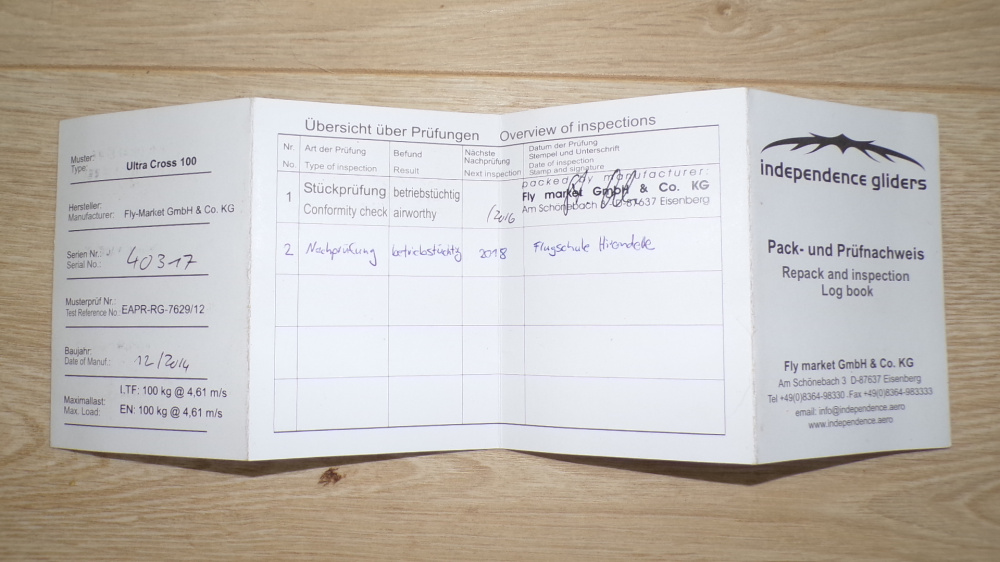 Muster:
Type:
Ultra Cross 100
Hersteller:
Manufacturer: Fly-Market GmbH & Co. KG
Serien Nr.:
Serial No.: 40317
Musterprüf Nr.:
Test Reference No. EAPR-RG-7629/12
Baujahr:
Date of Manuf.: 12/2014
Maximallast:
Max. Load:
I.TF: 100 kg @ 4,61 m/s
EN: 100 kg @ 4,61 m/s
Übersicht über Prüfungen Overview of inspections
Nr.
No.
Art der Prüfung
Type of inspection
Befund
Result
Nächste
Nachprüfung
Next inspection
Datum der Prüfung
Stempel und Unterschrift
Date of inspection
Stamp and signature
1
Stückprüfung
Conformity check
betriebstüchtig
airworthy
/2016
packed by manufacturer:
Fly market GmbH & Co. KG
Am Schönebach D-87637 Eisenberg
2 Nachprüfung betriebstüchtig 2018 Flugschule Hirondelle
independence gliders
Pack- und Prüfnachweis
Repack and inspection
Log book
Fly market GmbH & Co. KG
Am Schönebach 3 D-87637 Eisenberg
Tel +49(0)8364-98330 . Fax +49(0)8364-983333
email: info@independence.aero
www.independence.aero